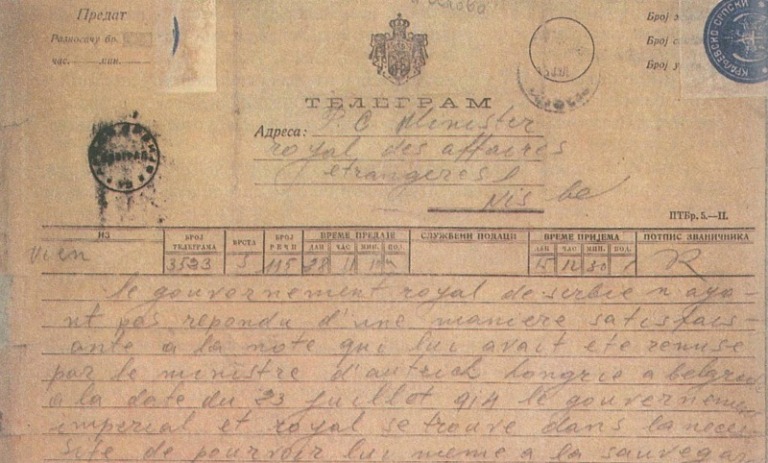 Предат
Разносачу бр.
час. мин.
Број
Број
Број
КРАЉЕВСКО СРПСКИ
ТЕЛЕГРАМ
Адреса: Minister
royal des affaires
etrangeres
Nis
ПТБр. 5.—II.
ИЗ БРОЈ ТЕЛЕГРАМА ВРСТА БРОЈ РЕЧИ ВРЕМЕ ПРЕДАЈЕ СЛУЖБЕНИ ПОДАЦИ ВРЕМЕ ПРИЈЕМА ПОТПИС ЗВАНИЧНИКА
ДАН ЧАС МИН. ПОД. ДАН ЧАС МИН. ПОД.
Vien 3523 5 115 28 11 12 30 R
le gouvernement royal de serbie n aya-
nt pas repondu d'une maniere satisfais-
ante a la note qui lui avait ete remise
par le ministre d'autrich hongrie a belgrad
a la date du 23 juillot 914 le gouvernement
imperial et royal se trouve dans la neces
site de pourvoir lui meme a la sauvegar